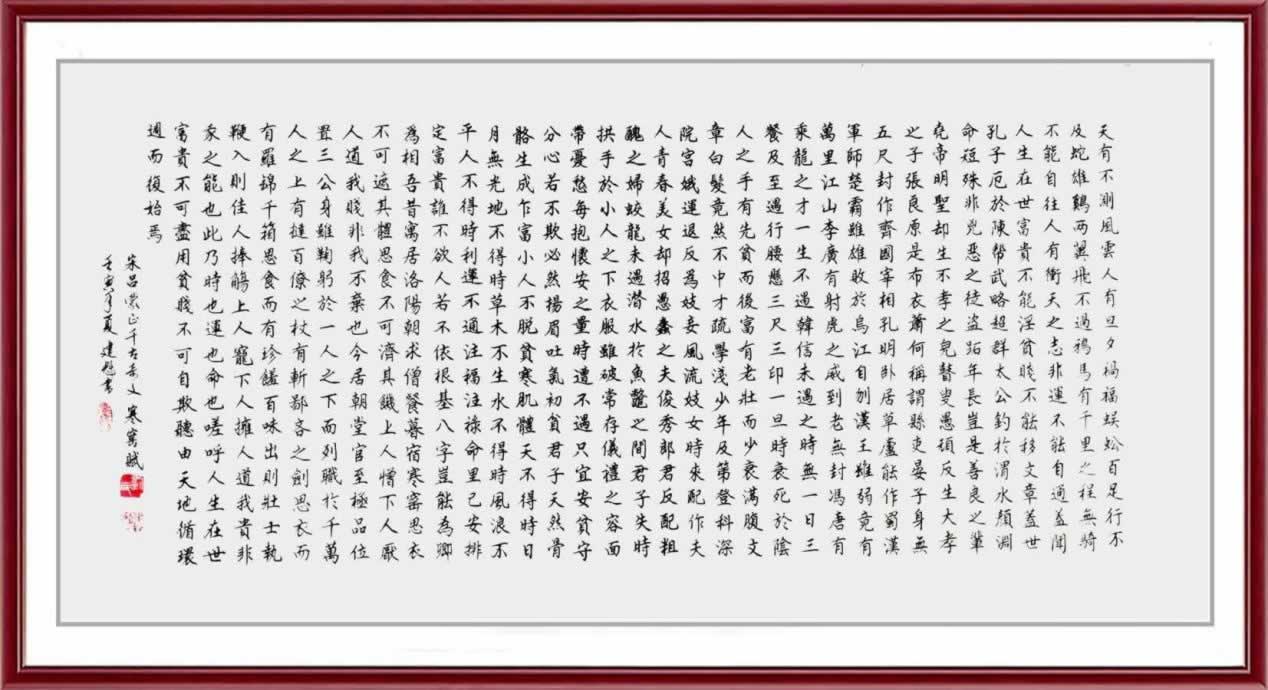 天有不測風雲人有旦夕禍福蜈蚣百足行不
及蛇雄鷄兩翼飛不過鴉馬有千里之程無騎
不能自往人有衝天之志非運不能自通蓋聞
人生在世富貴不能淫貧賤不能移文章蓋世
孔子厄於陳帮武略超群太公釣於渭水顏淵
命短殊非兇惡之徒盜跖年長豈是善良之輩
堯帝明聖却生不孝之兒瞽叟愚頑反生大孝
之子張良原是布衣蕭何稱謂縣吏晏子身無
五尺封作齊國宰相孔明卧居草廬能作蜀漢
軍師楚霸雖雄敗於烏江自刎漢王雖弱竟有
萬里江山李廣有射虎之威到老無封馮唐有
乘龍之才一生不遇韓信未遇之時無一日三
餐及至遇行腰懸三尺三印一旦時衰死於陰
人之手有先貧而後富有老壯而少衰滿腹文
章白髮竟然不中才疏學淺少年及第登科深
院宮娥運退反爲妓妾風流妓女時來配作夫
人青春美女却招愚蠢之夫俊秀郎君反配粗
醜之婦蛟龍未遇潜水於魚鼈之間君子失時
拱手於小人之下衣服雖破常存儀禮之容面
帶憂愁每抱懷安之量時遭不遇只宜安貧守
分心若不欺必然揚眉吐氣初貧君子天然骨
骼生成乍富小人不脱貧寒肌體天不得時日
月無光地不得時草木不生水不得時風浪不
平人不得時利運不通注福注禄命里已安排
定富貴誰不欲人若不依根基八字豈能為卿
爲相吾昔寓居洛陽朝求僧餐暮宿寒窰思衣
不可遮其體思食不可濟其饑上人憎下人厭
人道我賤非我不棄也今居朝堂官至極品位
置三公身雖鞠躬於一人之下而列職於千萬
人之上有撻百僚之杖有斬鄙吝之劍思衣而
有羅錦千箱思食而有珍饈百味出則壯士執
鞭入則佳人捧觴上人寵下人擁人道我貴非
我之能也此乃時也運也命也嗟呼人生在世
富貴不可盡用貧賤不可自欺聽由天地循環
週而復始焉
宋吕蒙正千古奇文寒窰賦
壬寅年夏建書